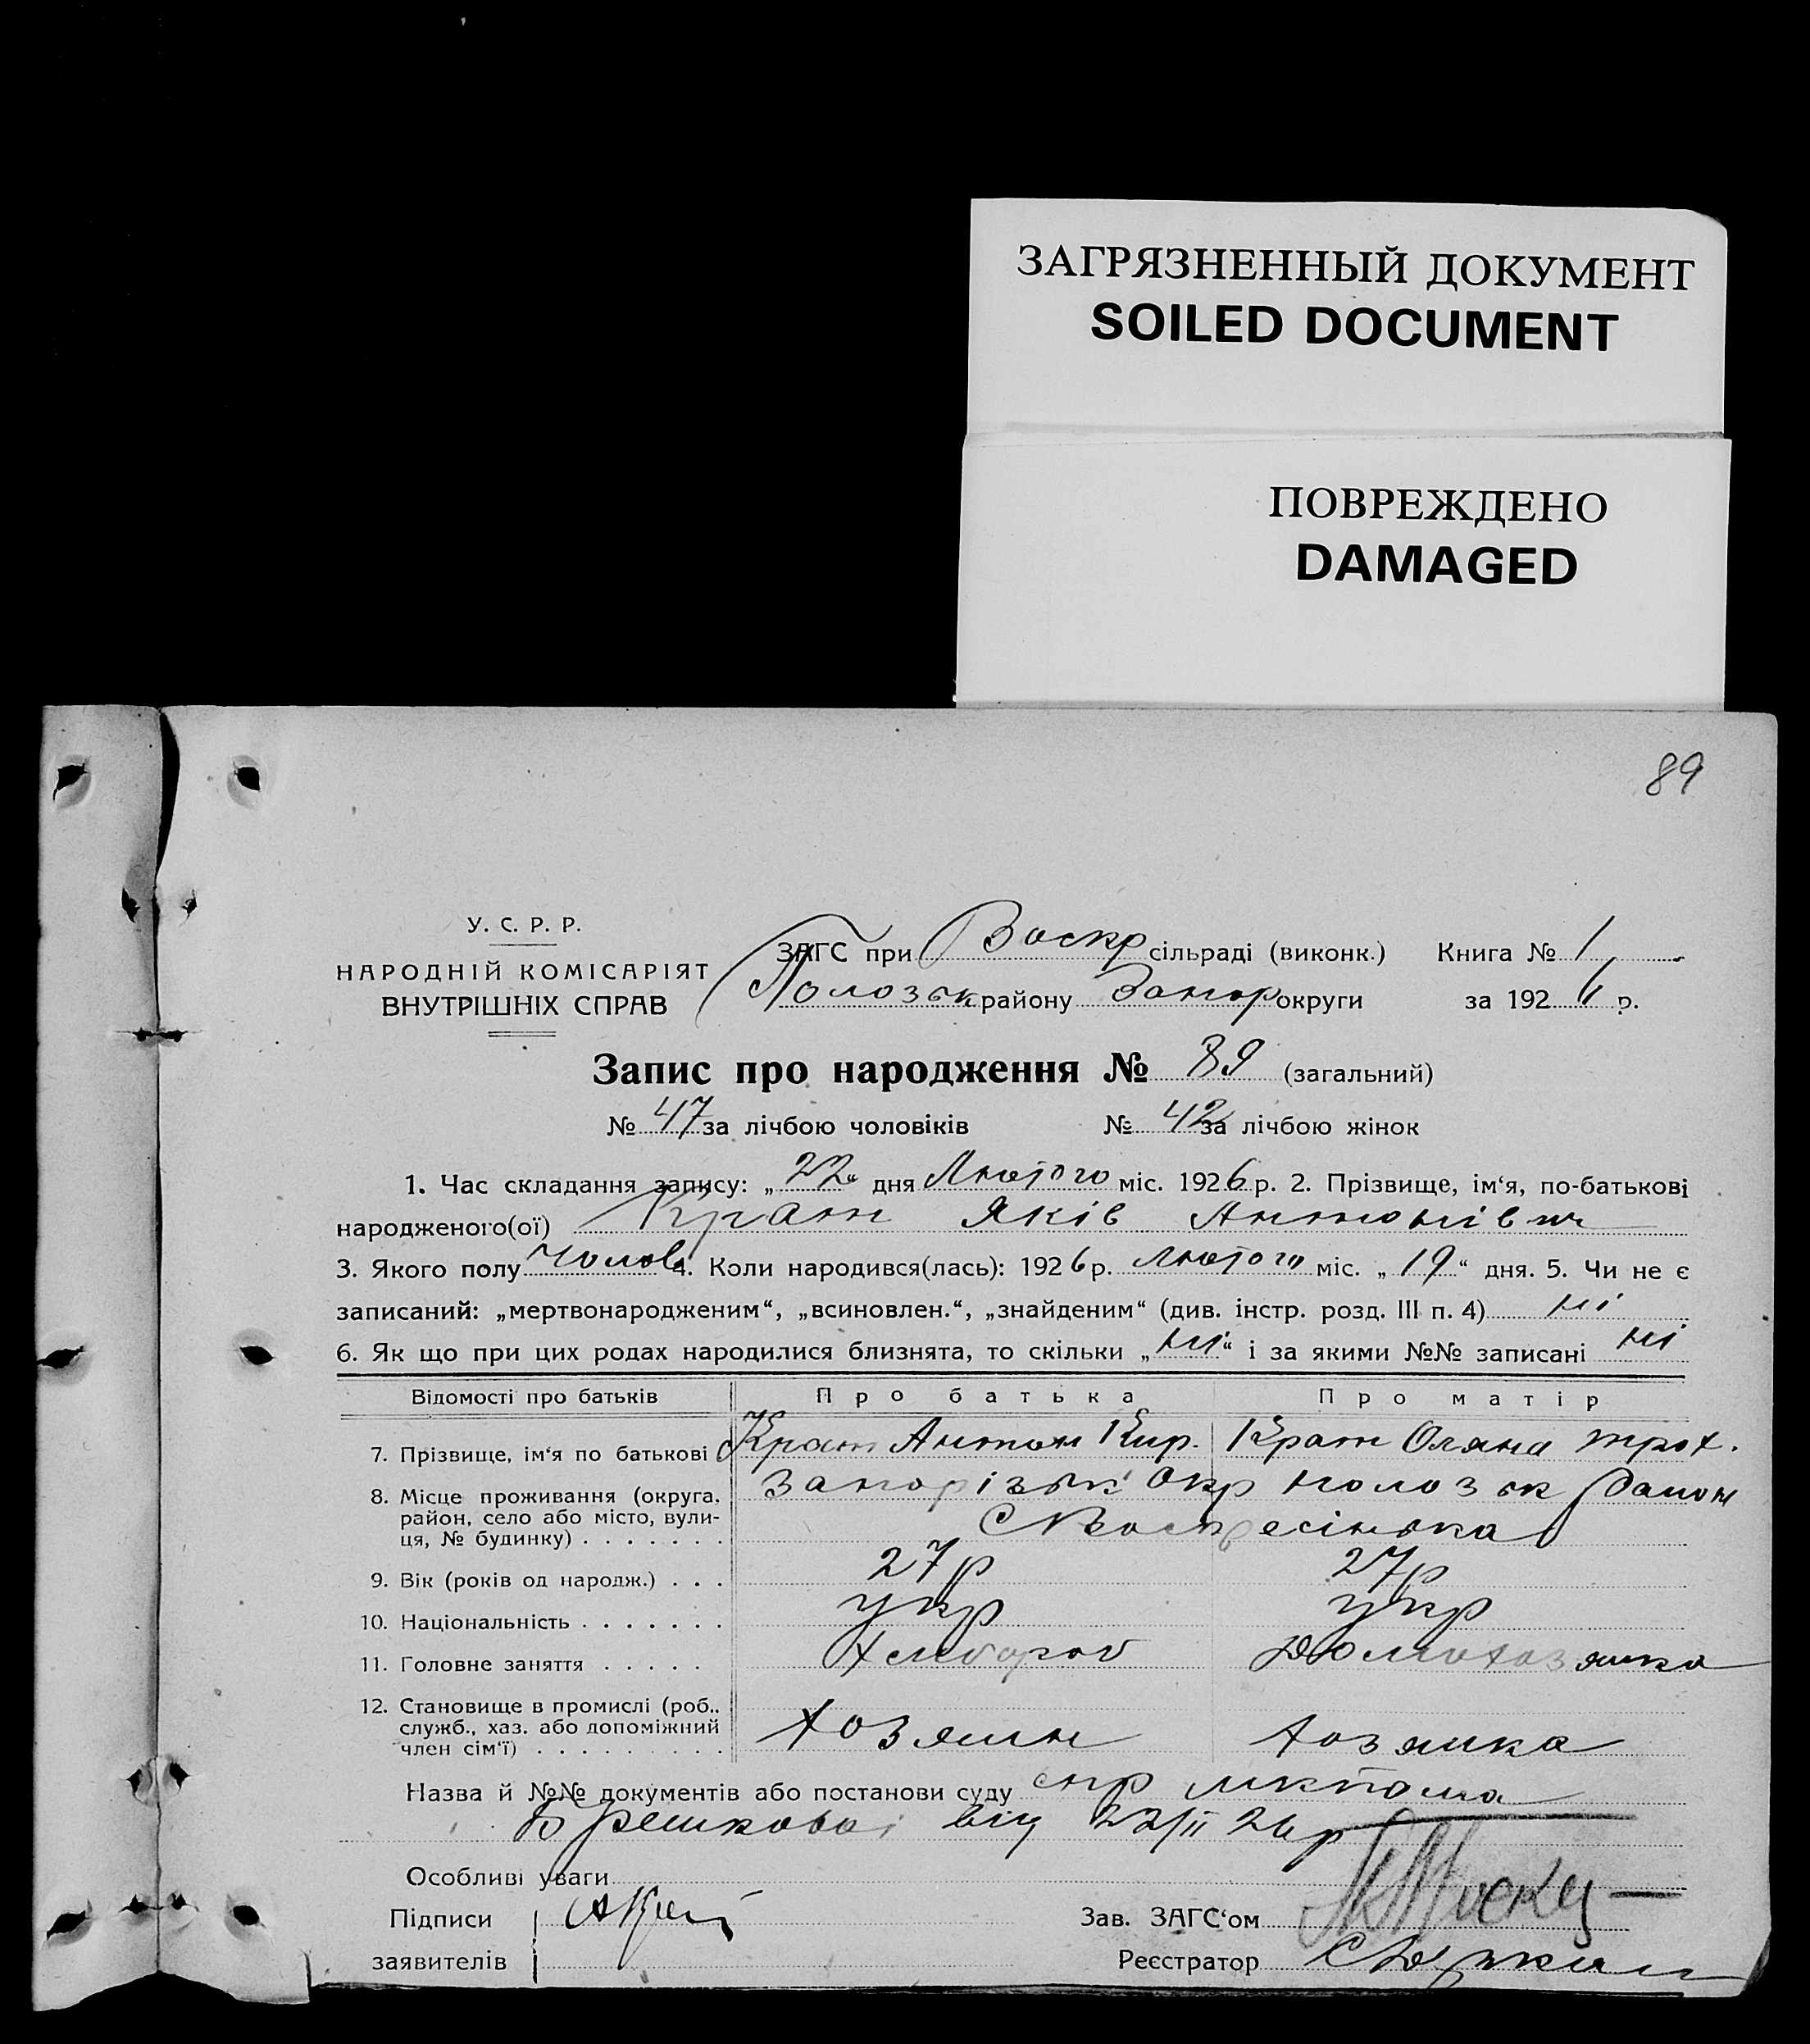 ЗАГРЯЗНЕННЫЙ ДОКУМЕНТ
SOILED DOCUMENT
ПОВРЕЖДЕНО
DAMAGED
89
У. С. Р. Р.
НАРОДНІЙ КОМІСАРІЯТ
ВНУТРІШНІХ СПРАВ
ЗАГС при Воскр сільраді (виконк.) Книга № 1
Полозьк району Запор округи за 1926 р.
Запис про народження № 89 (загальний)
№ 47 за лічбою чоловіків № 42 за лічбою жінок
1. Час складання запису: „22“ дня Лютого міс. 1926 р. 2. Прізвище, ім‘я, по-батькові
народженого(ої) Крат Яків Антонівич
3. Якого полу Чолов 4. Коли народився(лась): 1926 р. Лютого міс. „19“ дня. 5. Чи не є
записаний: „мертвонародженим“, „всиновлен.“, „знайденим“ (див. інстр. розд. III п. 4) ні
6. Як що при цих родах народилися близнята, то скільки „ні“ і за якими №№ записані ні
Відомості про батьків Про батька Про матір
7. Прізвище, ім‘я по батькові Крат Антон Кир. Крат Оляна Трох.
8. Місце проживання (округа, район, село або місто, вули-ця, № будинку) . . . . . . . Запорізьк Окр Полозьк Район
С Воскресінька
9. Вік (років од народж.) . . . 27 р 27 р
10. Національність . . . . . . . укр укр
11. Головне заняття . . . . . Хлібороб Домохозяйка
12. Становище в промислі (роб., служб., хаз. або допоміжний член сім‘ї) . . . . . . . . . Хозяин Хозяйка
Назва й №№ документів або постанови суду спр
від 22/II 26 р
Особливі уваги
Підписи
заявителів
Зав. ЗАГС‘ом
Реєстратор